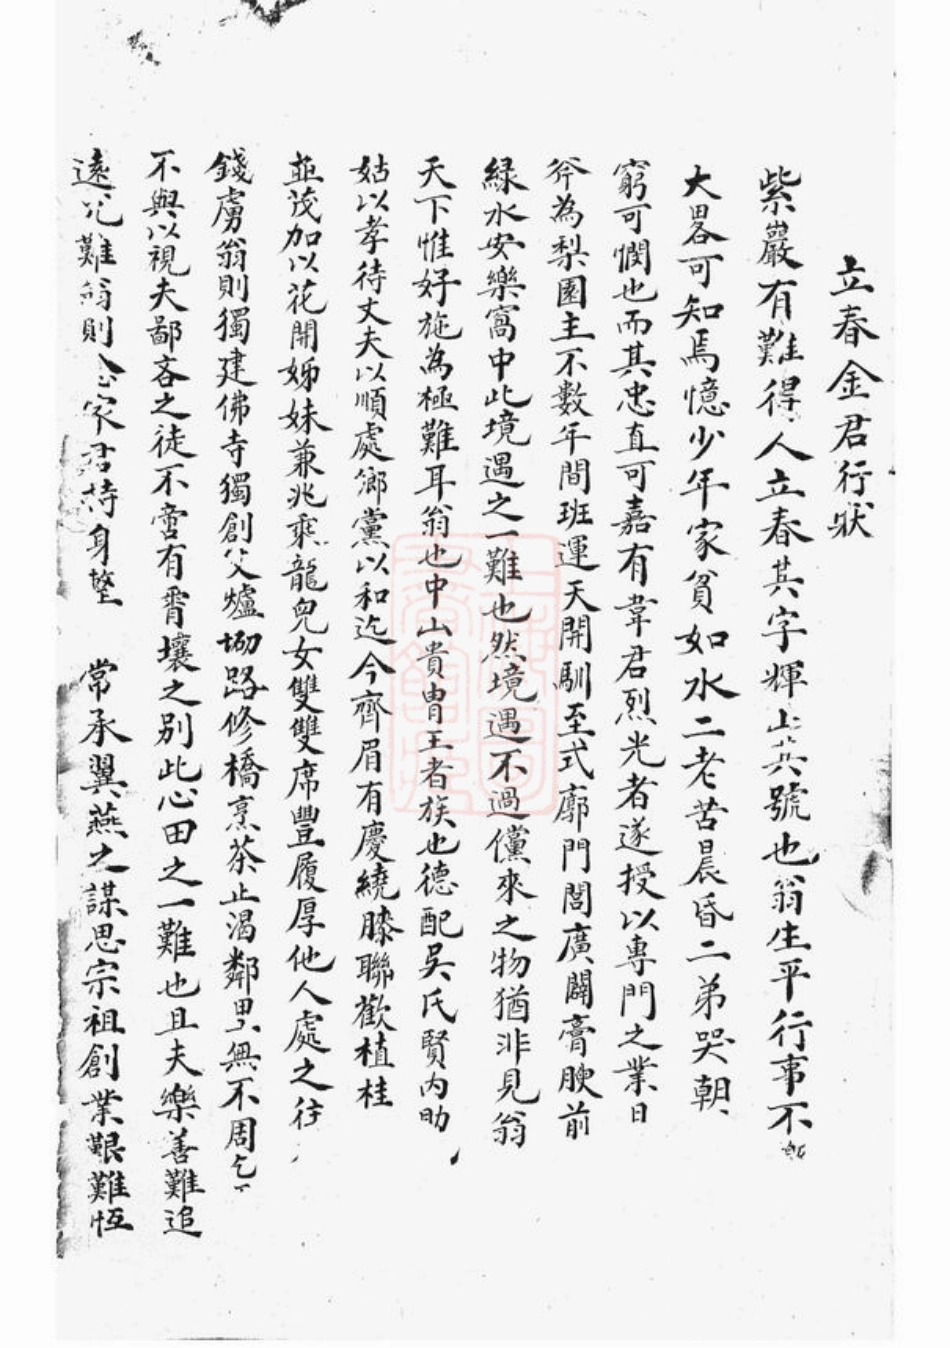 立春金君行狀
紫巖有難得人立春其字輝山其號也翁生平行事不
大畧可知焉憶少年家貧如水二老苦晨昏二弟哭朝
窮可憫也而其忠直可嘉有韋君烈光者遂授以專門之業日
斧為梨園主不數年間班運天開馴至式廓門閭廣闢膏腴前
綠水安樂窩中此境遇之一難也然境遇不過儻來之物猶非見翁
天下惟好施為極難耳翁也中山貴胄王者族也德配吳氏賢內助
姑以孝待丈夫以順處鄉黨以和迄今齊眉有慶繞膝聯歡植桂
並茂加以花開姊妹兼兆乘龍兒女雙雙席豐履厚他人處之往
錢虜翁則獨建佛寺獨創父爐坳路修橋烹茶止渴鄰里無不周
不與以視夫鄙吝之徒不啻有霄壤之別此心田之一難也且夫樂善難追
遠尤難翁則念家君持身 常承翼燕之謀思宗祖創業艱難恆